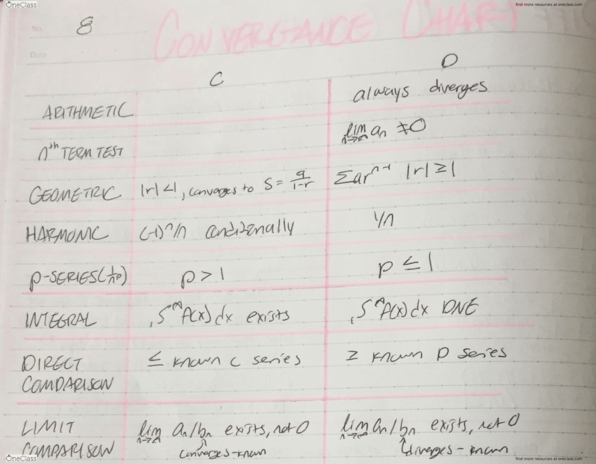 OneClass
find more resources at oneclass.com
No. 8
CONVERGANCE CHART
Date
C D
ARITHMETIC always diverges
nth TERM TEST lim n→∞ an ≠ 0
GEOMETRIC |r|<1, converges to S = a/1-r Σar^n-1 |r|≥1
HARMONIC (-1)^n/n conditionally 1/n
P-SERIES(1/n^p) p > 1 p ≤ 1
INTEGRAL 1∫^∞ f(x)dx exists 1∫^∞ f(x)dx DNE
DIRECT ≤ known C series ≥ known D series
COMPARISON
LIMIT lim n→∞ an/bn exists, not 0 lim n→∞ an/bn exists, not 0
COMPARISON converges-known diverges-known
OneClass
find more resources at oneclass.com